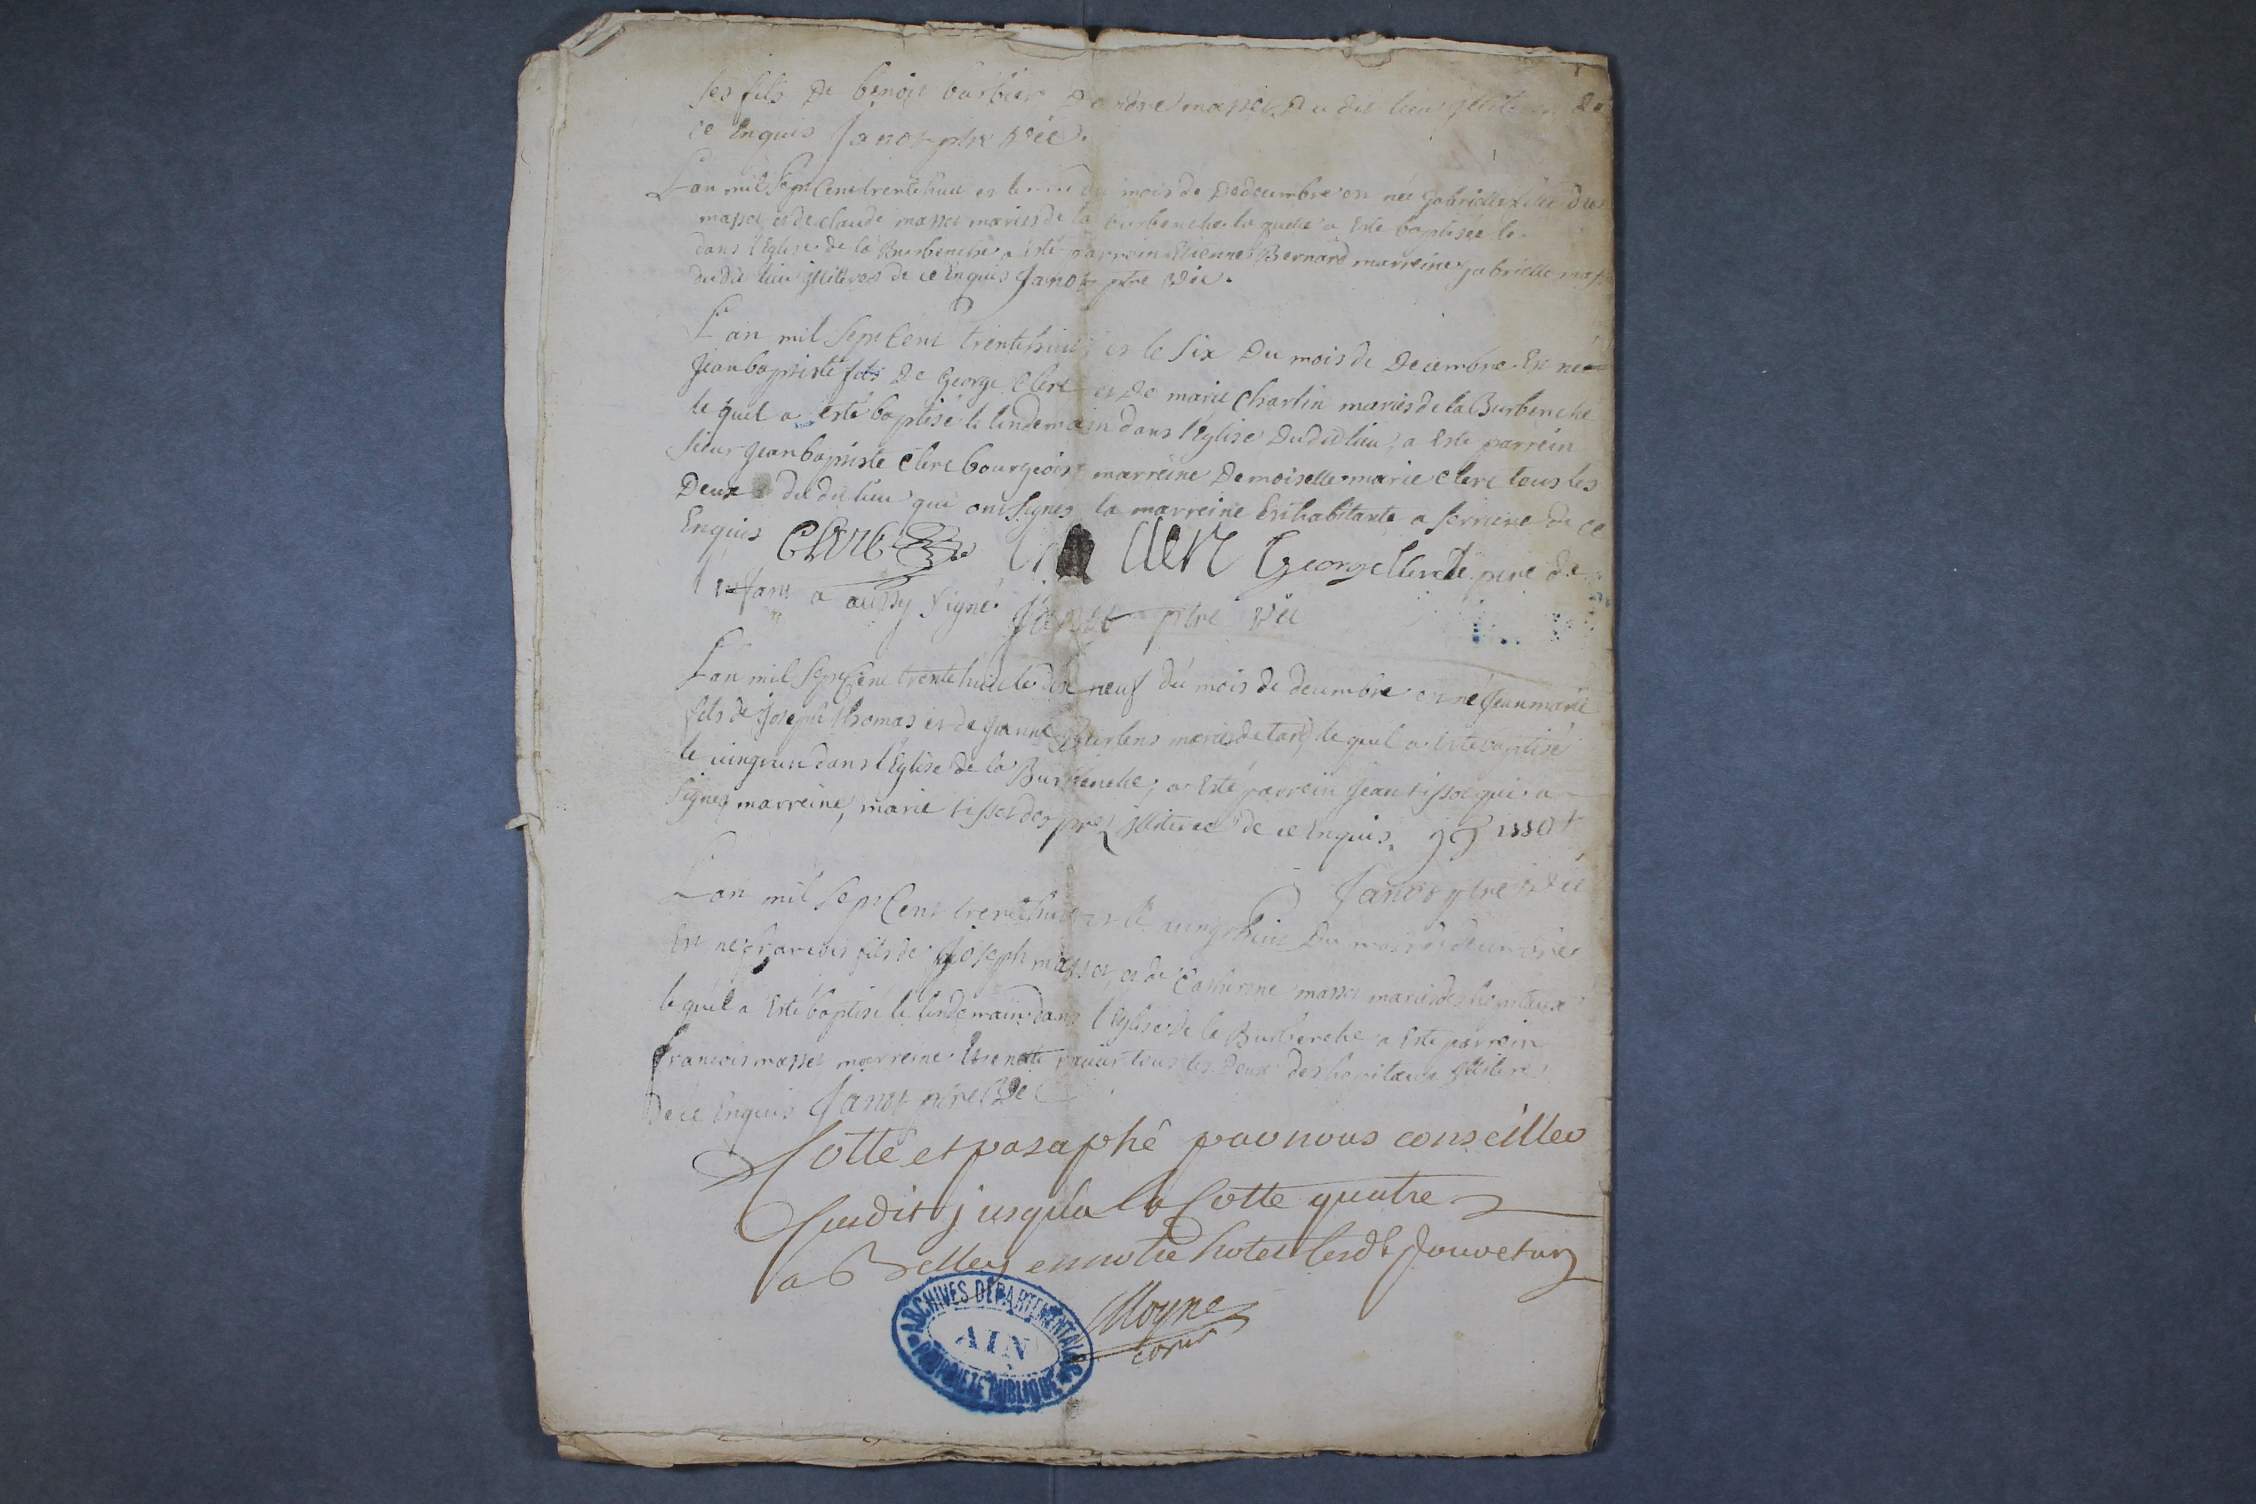 ses fils de benoit barbier D andre masset Du dit lieu illit
ce Enquis Janot ptre vic.
L'an mil sept Cent trente huit et le du mois de Dedecembre est née gabrielle fille de
masset et de claude masset mariés de la burbenche la quelle a Este baptisée le
dans l'Eglise de la Burbenche a esté parrein Etienne Bernard marreine gabrielle mass
du dit lieu illiteres de ce Enquis Janot ptre vic.
L'an mil sept Cent trente huit et le six Du mois de Decembre Est né
Jean baptiste fils De George Clerc et De marie Charlin mariés de la Burbenche
le quel a esté baptisé le lendemain dans l'Eglise Dudit lieu, a Esté parrein
sieur Jean baptiste Clerc bourgeois marreine Demoiselle marie Clerc tous les
Deux du dit lieu qui ont signes la marreine Est habitante a de ce
Enquis Clerc Clerc George Clerc le pere de
l'enfant a aussy signé Janot ptre vic
L'an mil sept Cent trente huit le dix neuf du mois de decembre est né Jean marie
fils de Joseph thomas et de Jeanne mariés de tard le quel a esté baptisé
le vingt un dans l'Eglise de la Burbenche, a Esté parrein Jean tissot qui a
signez marreine, marie tissot des illiteree de ce Enquis. J tissot
Janot ptre vic
L'an mil sept Cent trente huit et le vingt huit Du mois de decembre
Est né francois fils de Joseph masset, et de Catherine masset mariés des hopitaux
le quel a Esté baptisé le lendemain dans l'Eglise de la Burbenche a Esté parrein
francois masset marreine tous les Deux des hopitaux illiteres
De ce Enquis Janot ptre Vic
Cotté et paraphé par nous conseiller
susdit jusqu'a la Cotte quatre
a Belley en notre hotel lesdt Jour et an
Moyne
consr
ARCHIVES DÉPARTEMENTALES
AIN
PROPRIÉTÉ PUBLIQUE